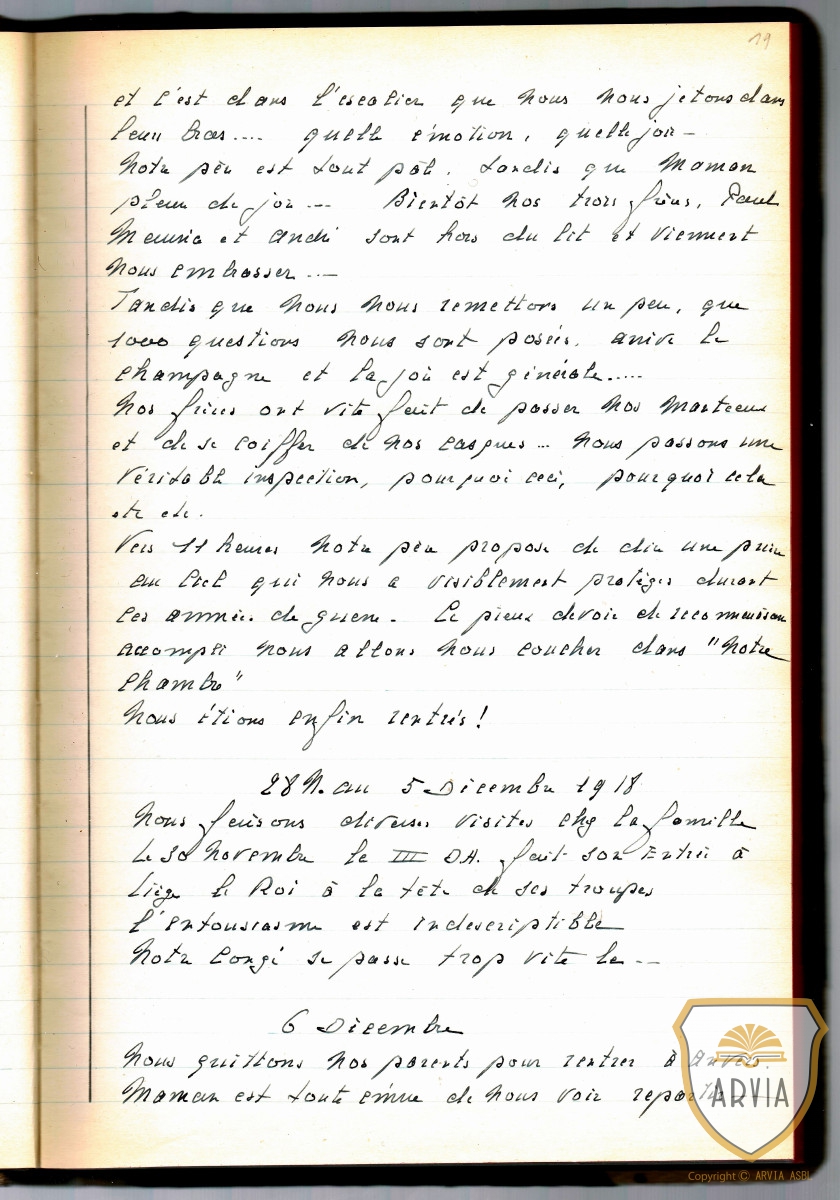 19
et c'est dans l'escalier que nous nous jetons dans
leur bras.... quelle émotion, quelle joie -
Notre père est tout pâle, tandis que Maman
pleure de joie --- Bientôt nos trois frères, Paul
Maurice et André sont hors du lit et viennent
nous embrasser ---
Tandis que nous nous remettons un peu, que
1000 questions nous sont posées, arrive le
champagne et la joie est générale.....
Nos frères ont vite fait de passer nos manteaux
et de se coiffer de nos casques ... nous passons une
véritable inspection, pourquoi ceci, pourquoi cela
etc etc.
Vers 11 heures Notre père propose de dire une prière
au Ciel qui nous a visiblement protégés durant
ces années de guerre. Ce pieux devoir de reconnaissance
accompli nous allons nous coucher dans "Notre
Chambre"
Nous étions enfin rentrés !
28 N. au 5 Décembre 1918
Nous faisons diverses visites chez la famille
Le 30 Novembre la III D.A. fait son Entrée à
Liège le Roi à la tête de ses troupes
l'entousiasme est indescriptible
Notre congé se passe trop vite
6 Décembre
Nous quittons nos parents pour rentrer à Anvers.
Maman est toute émue de nous voir repartir
ARVIA
Copyright © ARVIA ASBL